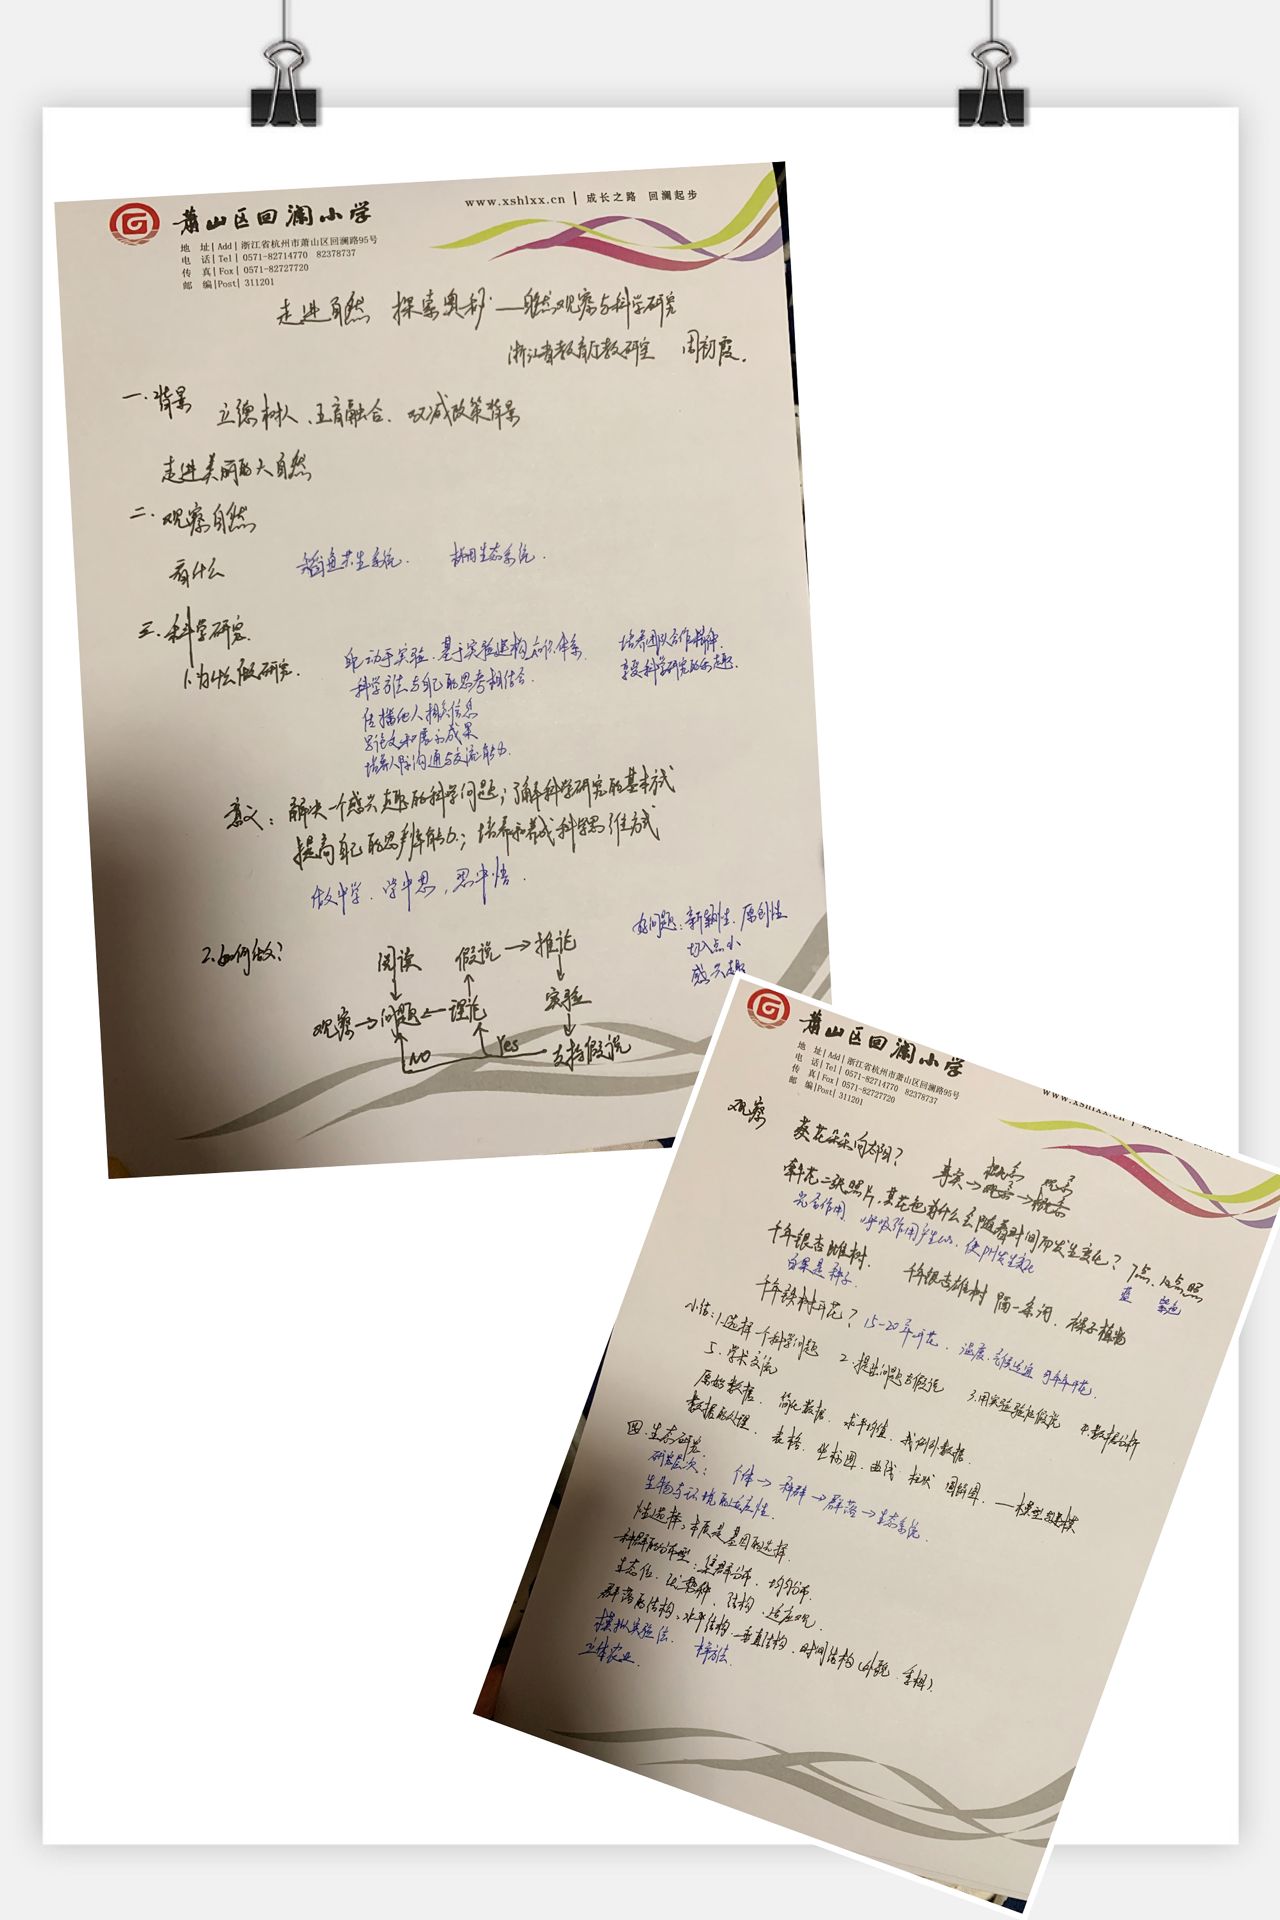 萧山区回澜小学
www.xshlxx.cn | 成长之路 回澜起步
地 址| Add | 浙江省杭州市萧山区回澜路95号
电 话| Tel | 0571-82714770 82378737
传 真| Fox | 0571-82727720
邮 编|Post| 311201
走进自然 探索奥秘——自然观察与科学研究
浙江省教育厅教研室 周初霞.
一.背景
立德树人、五育融合、双减政策背景
走进美丽的大自然
二.观察自然
看什么 稻鱼共生系统. 梯田生态系统.
三.科学研究
1.为什么做研究.
动手实验.基于实验建构知识体系
科学方法与自己的思考相结合
传播他人相关信息
写论文和展示成果
培养人际沟通与交流能力.
培养团队合作精神.
享受科学研究的乐趣.
意义: 解决一个感兴趣的科学问题;了解科学研究的基本方式
提高自己的思辨能力; 培养和养成科学思维方式
做中学.学中思,思中悟.
好问题:新颖性.原创性
切入点小
感兴趣
2.如何做?
阅读 假说→推论
观察→问题←理论 实验
NO Yes 支持假说
萧山区回澜小学
www.xshlxx.cn
地 址| Add | 浙江省杭州市萧山区回澜路95号
电 话| Tel | 0571-82714770 82378737
传 真| Fox | 0571-82727720
邮 编|Post| 311201
观察
葵花朵朵向太阳?
事实→概念
牵牛花二张照片,其花色为什么会随着时间而发生变化? 7点、12点照
光合作用 呼吸作用产生CO₂,使PH发生变化 蓝 紫色
千年银杏雌树. 千年银杏雄树 隔一条河. 裸子植物
白果是种子.
千年铁树开花? 15-20年开花. 温度.气候适宜 可年年开花.
小结:1.选择一个科学问题 2.提出问题与假说 3.用实验验证假说 4.数据分析
5.学术交流
原始数据. 简化数据. 求平均值.
数据的处理. 表格.坐标图.曲线.柱状 图解图.——模型
四.生态研究
研究层次: 个体→种群→群落→生态系统.
生物与环境的适应性.
性选择,本质是基因的选择.
种群的分布型:集群分布.均匀分布.
生态位.优势种.结构.适应
群落的结构,水平结构.垂直结构.时间结构(外貌.季相).
模拟实验法. 样方法.
立体农业.